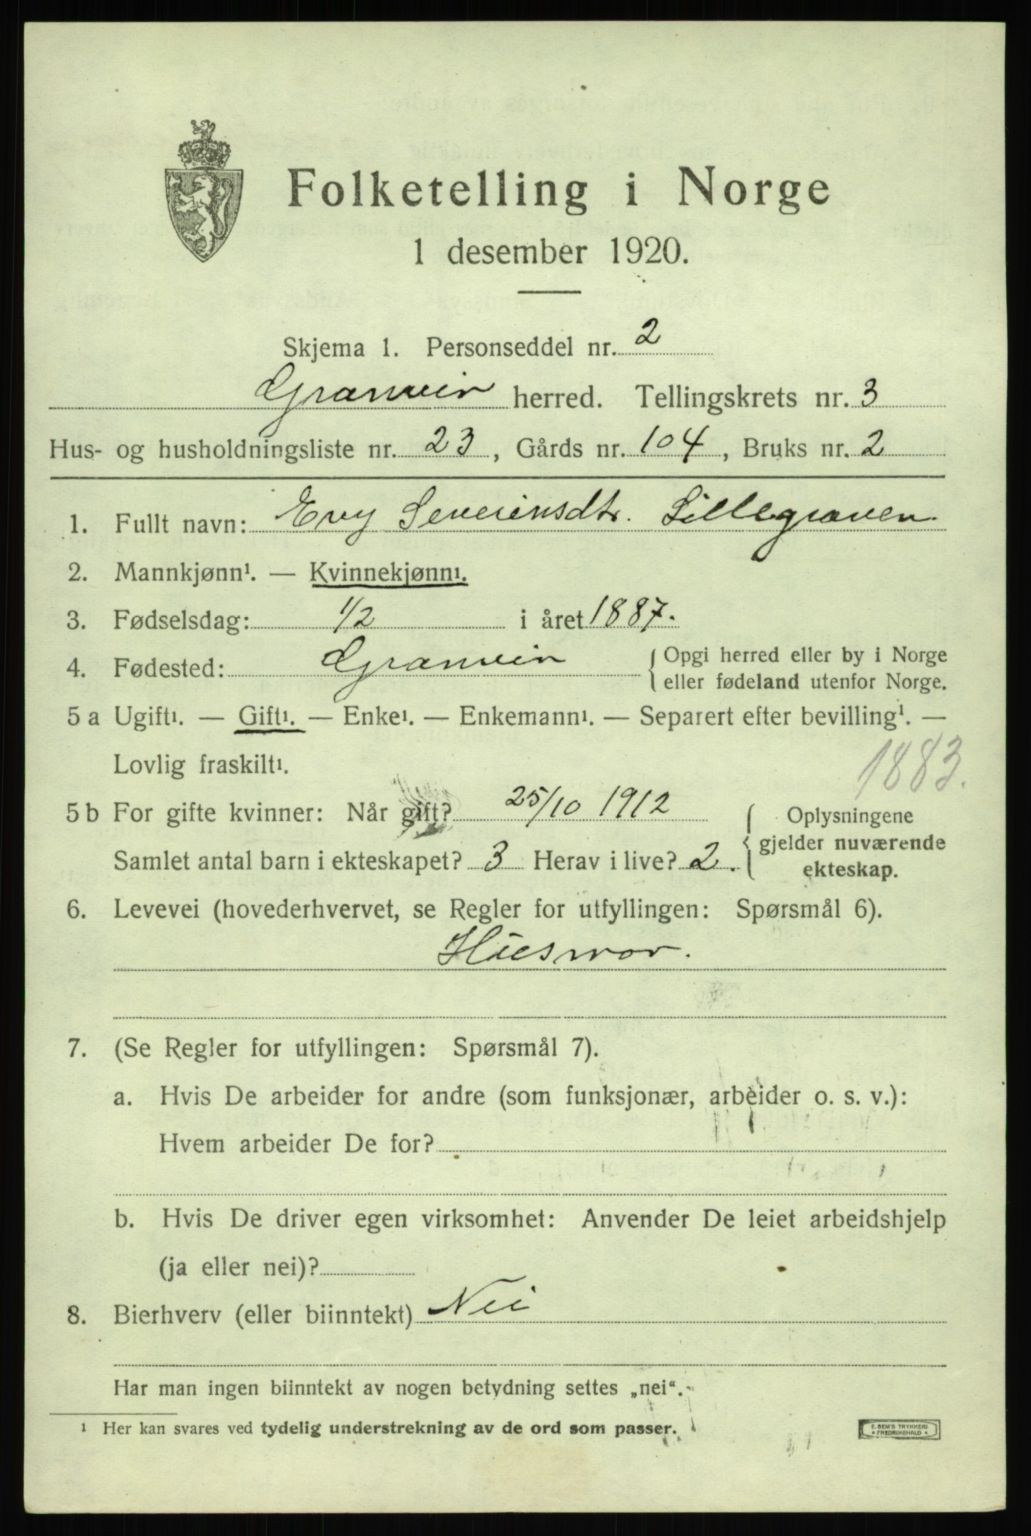 Folketelling i Norge
1 desember 1920.
Skjema 1. Personseddel nr. 2
Granvin herred. Tellingskrets nr. 3
Hus- og husholdningsliste nr. 23, Gårds nr. 104, Bruks nr. 2
1. Fullt navn: Evy Severinsdtr. Lillegraven
2. Mannkjønn¹. — Kvinnekjønn¹.
3. Fødselsdag: 1/2 i året 1887.
4. Fødested: Granvin { Opgi herred eller by i Norge
eller fødeland utenfor Norge.
5 a Ugift¹. — Gift¹. — Enke¹. — Enkemann¹. — Separert efter bevilling¹. —
Lovlig fraskilt¹.
1883.
5 b For gifte kvinner: Når gift? 25/10 1912
Samlet antal barn i ekteskapet? 3 Herav i live? 2.
{ Oplysningene
gjelder nuværende
ekteskap.
6. Levevei (hovederhvervet, se Regler for utfyllingen: Spørsmål 6).
Husmor.
7. (Se Regler for utfyllingen: Spørsmål 7).
a. Hvis De arbeider for andre (som funksjonær, arbeider o. s. v.):
Hvem arbeider De for?
b. Hvis De driver egen virksomhet: Anvender De leiet arbeidshjelp
(ja eller nei)?
8. Bierhverv (eller biinntekt) Nei
Har man ingen biinntekt av nogen betydning settes „nei“.
¹ Her kan svares ved tydelig understrekning av de ord som passer.
E. SEM'S TRYKKERI
FREDRIKSHALD